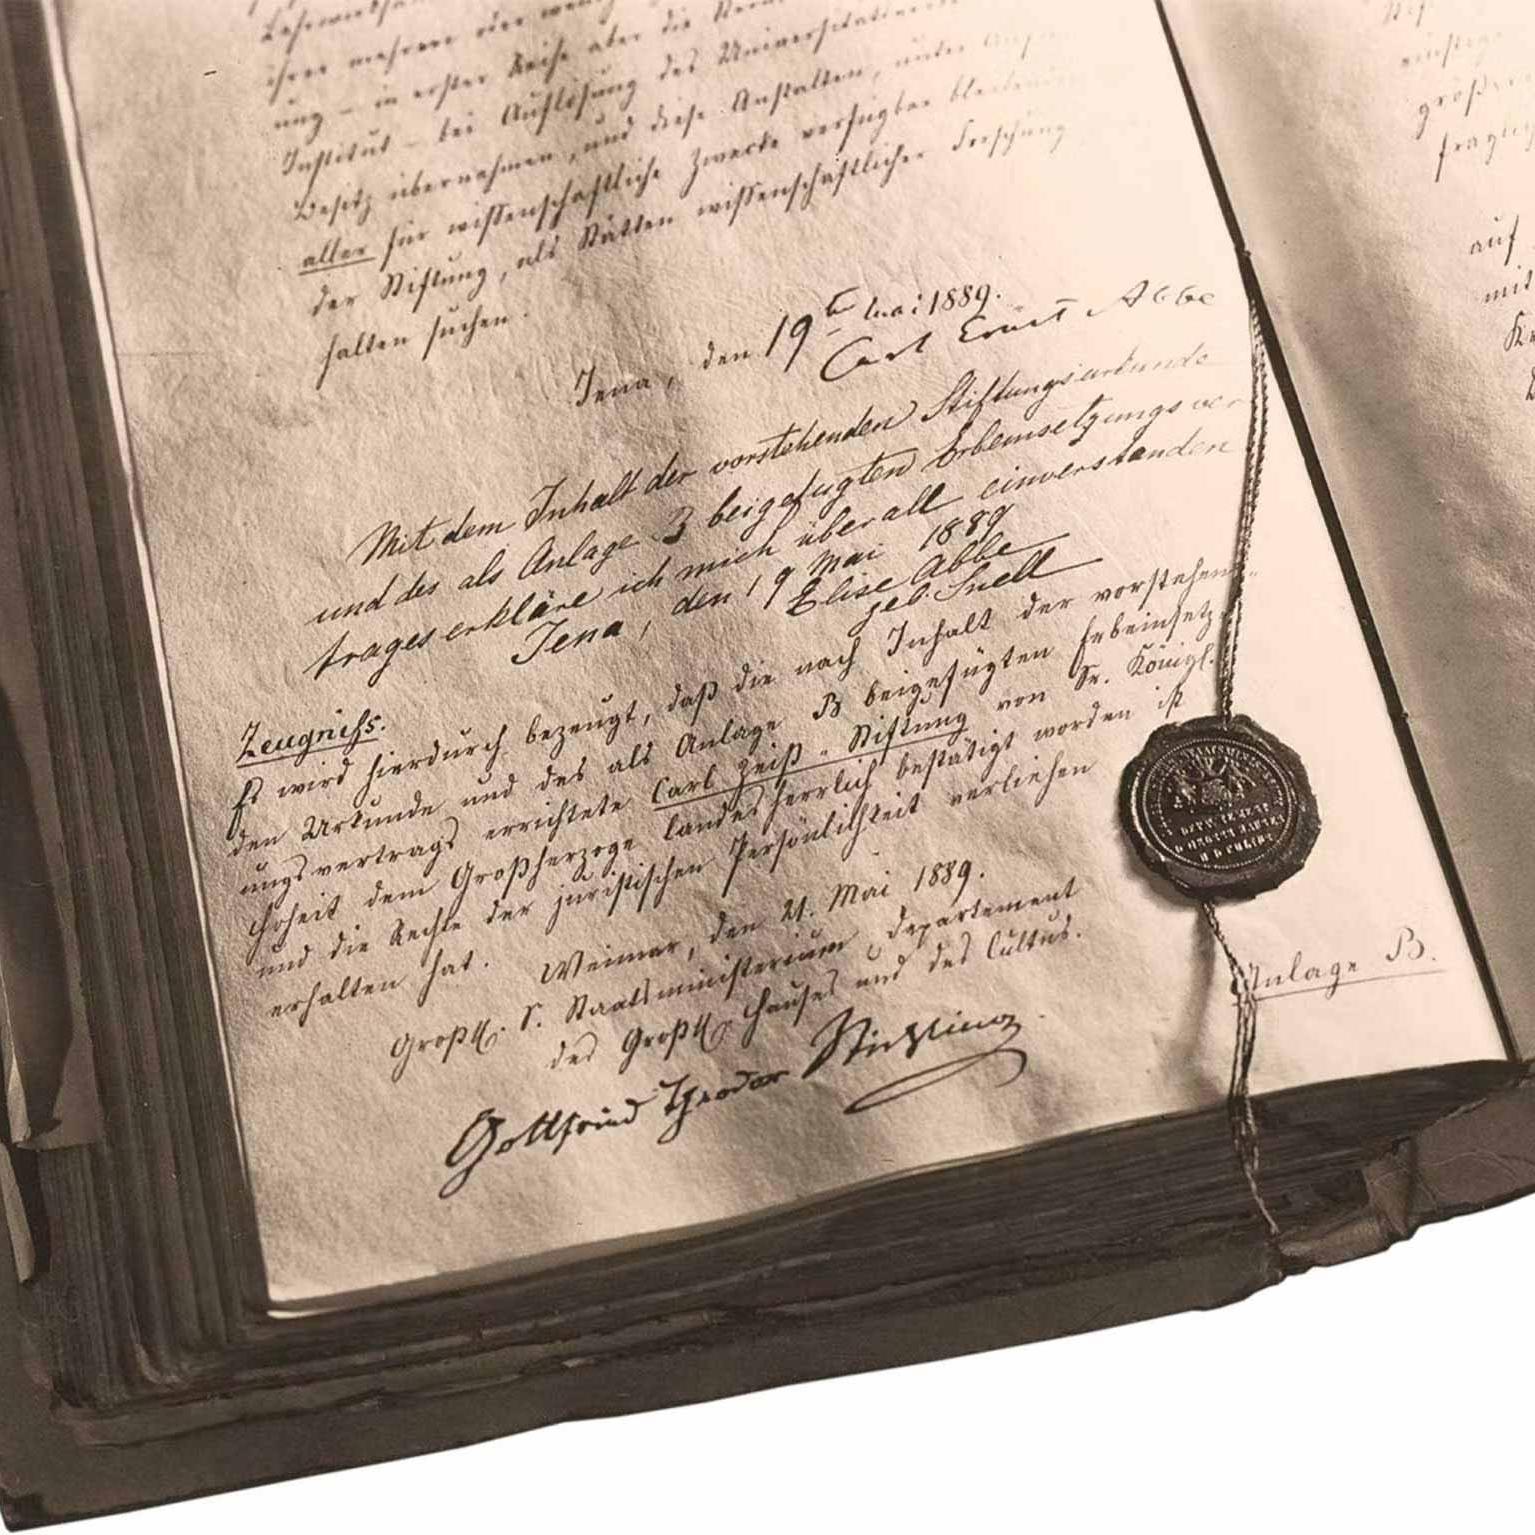 ihren mehrere oder wenig
ung – in erster Reihe aber die
Institut – bei Auflösung des Universitäts
Besitz übernehmen, und diese Anstalten, unter
aller für wissenschaftliche Zwecke verfügbar bleibenden
der Stiftung, als Stätten wissenschaftlicher Forschung
halten suchen.
Jena, den 19ten Mai 1889.
Carl Ernst Abbe
Mit dem Inhalt der vorstehenden Stiftungsurkunde
und des als Anlage B beigefügten Erbeinsetzungsver
trages erkläre ich mich überall einverstanden
Jena, den 19 Mai 1889
Elise Abbe
geb. Snell
Zeugniss.
Es wird hierdurch bezeugt, daß die nach Inhalt der vorstehen-
den Urkunde und des als Anlage B beigefügten Erbeinsetz-
ungsvertrags errichtete Carl Zeiß-Stiftung von Sr. Königl.
Hoheit dem Großherzoge landesherrlich bestätigt worden ist
und die Rechte der juristischen Persönlichkeit verliehen
erhalten hat.
Weimar, den 21. Mai 1889.
Großh. S. Staatsministerium, Departement
des Großh. Hauses und des Cultus.
Gottfried Theodor Stichling
Anlage B.
auf
mit